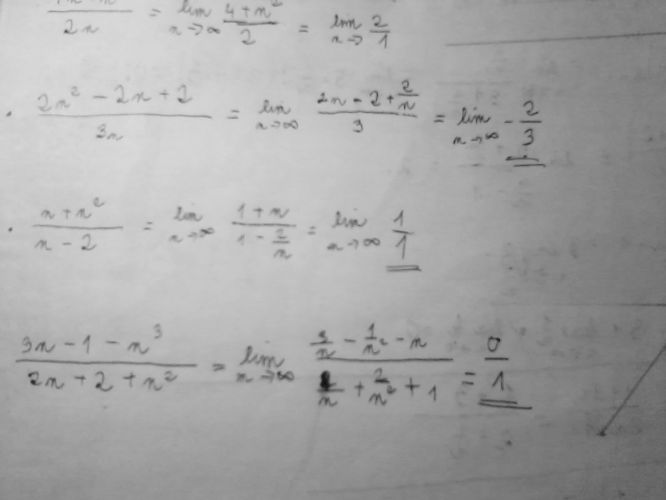 /2n = lim n→∞ (4 + n²)/2 = lim n→ 2/1
· (2n² − 2n + 2)/3n = lim n→∞ (2n − 2 + 2/n)/3 = lim n→∞ − 2/3
· (n + n²)/(n − 2) = lim n→∞ (1 + n)/(1 − 2/n) = lim n→∞ 1/1
(3n − 1 − n³)/(2n + 2 + n²) = lim n→∞ (3/n − 1/n² − n)/(2/n + 2/n² + 1) = 0/1